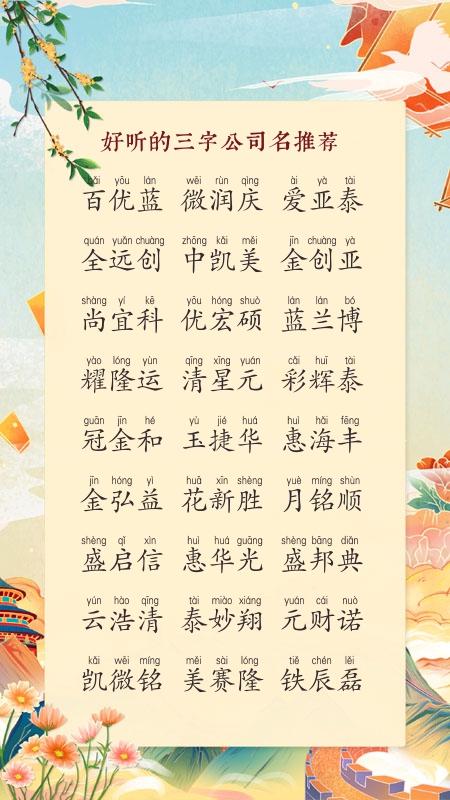 好听的三字公司名推荐
bǎi yōu lán wēi rùn qìng ài yà tài
百优蓝 微润庆 爱亚泰
quán yuǎn chuàng zhōng kǎi měi jīn chuàng yà
全远创 中凯美 金创亚
shàng yí kē yōu hóng shuò lán lán bó
尚宜科 优宏硕 蓝兰博
yào lóng yùn qīng xīng yuán cǎi huī tài
耀隆运 清星元 彩辉泰
guān jīn hé yù jié huá huì hǎi fēng
冠金和 玉捷华 惠海丰
jīn hóng yì huā xīn shèng yuè míng shùn
金弘益 花新胜 月铭顺
shèng qǐ xìn huì huá guāng shèng bāng diǎn
盛启信 惠华光 盛邦典
yún hào qīng tài miào xiáng yuán cái nuò
云浩清 泰妙翔 元财诺
kǎi wēi míng měi sài lóng tiě chén lěi
凯微铭 美赛隆 铁辰磊